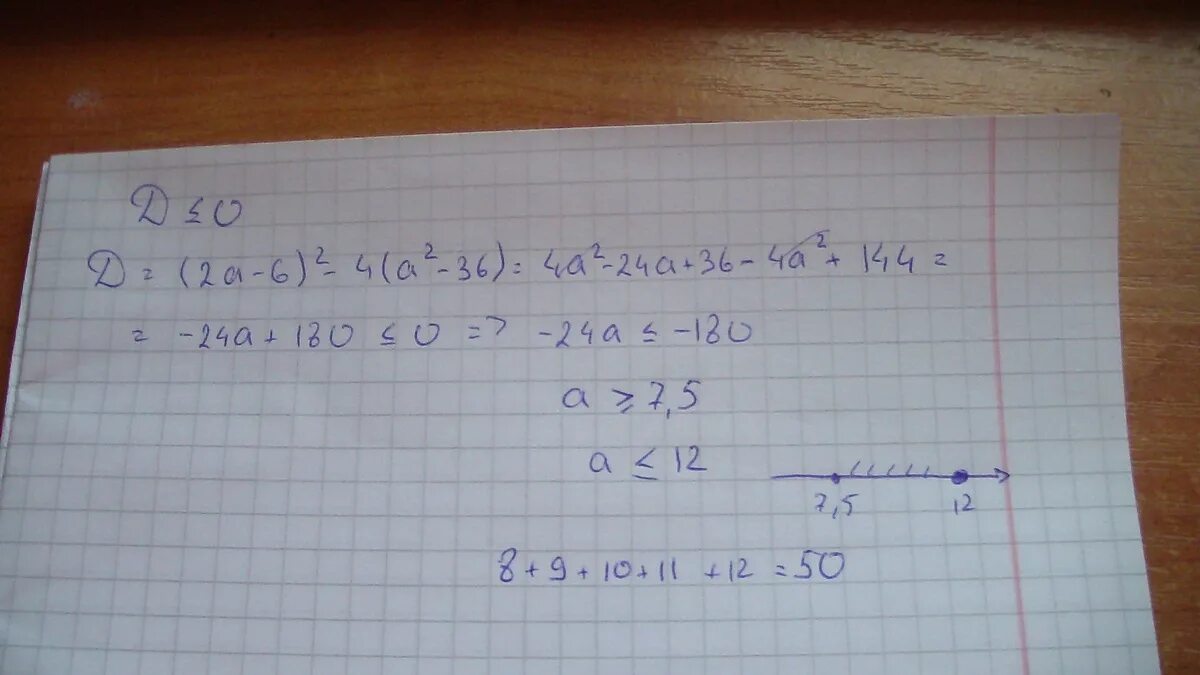 D ≤ 0
D = (2a-6)² - 4(a²-36) = 4a²-24a+36-4a²+144 =
= -24a+180 ≤ 0 => -24a ≤ -180
a ≥ 7,5
a ≤ 12
7,5 12
8+9+10+11+12=50